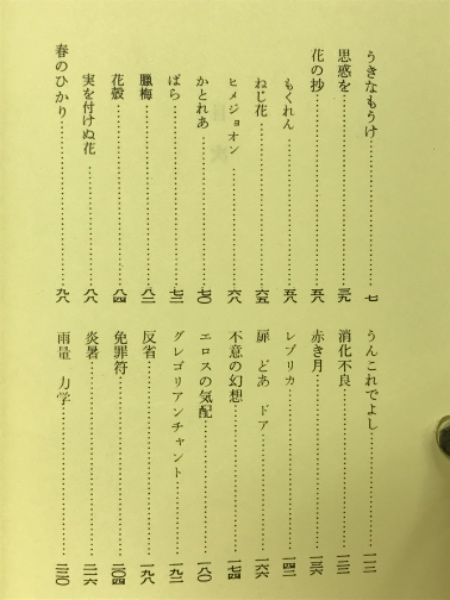 うきなもうけ……七
思惑を……三九
花の抄……五八
もくれん……五八
ねじ花……六五
ヒメジョオン……六八
かとれあ……七〇
ばら……七二
臘梅……八二
花殻……八四
実を付けぬ花……八八
春のひかり……九八
うんこれでよし……一一二
消化不良……一二二
赤き月……一三六
レプリカ……一四二
扉 どあ ドア……一六六
不意の幻想……一七四
エロスの気配……一八〇
グレゴリアンチャント……一九二
反省……一九八
免罪符……二〇四
炎暑……二一六
雨量 力学……二三〇